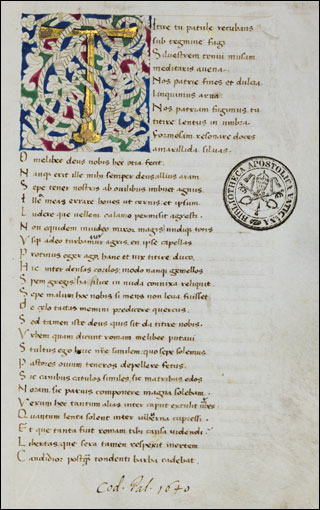 Titire tu patule recubans
sub tegmine fagi
Silvestrem tenui musam
meditaris avena.
Nos patrie fines et dulcia
Linquimus arva
Nos patriam fugimus, tu
titire lentus in umbra
Formosam resonare doces
amarillida silvas.
O melibee deus nobis hec otia fecit.
Nanque erit ille mihi semper deus, illius aram
Sepe tener nostris ab ovilibus imbuet agnus.
Ille meas errare boves ut cernis, et ipsum
Ludere que vellem calamo permisit agresti.
Non equidem invideo miror magis, undiqȝ totis
Usqȝ adeo turbamur agris, en ipse capellas
Protinus eger ago, hanc et vix titire duco.
Hic inter densas corilos, modo nanqȝ gemellos
Spem gregis, ha silice in nuda connixa reliquit
Sepe malum hoc nobis si mens non leva fuisset
De celo tactas memini predicere quercus
Sed tamen iste deus quis sit da titire nobis.
Urbem quam dicunt romam melibee putavi
Stultus ego huic nr̃e similem, quo sepe solemus
Pastores ovium teneros depellere fetus.
Sic canibus catulos similes, sic matribus edos
Noram, sic parvis componere magna solebam.
Verum hec tantum alias inter caput extulit urbes
Quantum lenta solent inter viburna cupressi.
Et que tanta fuit romam tibi causa videndi.
Libertas, que sera tamen respexit inertem
Candidior postq̃ tondenti barba cadebat.
BIBLIOTHECA APOSTOLICA VATICANA
Cod. Pal. 1640